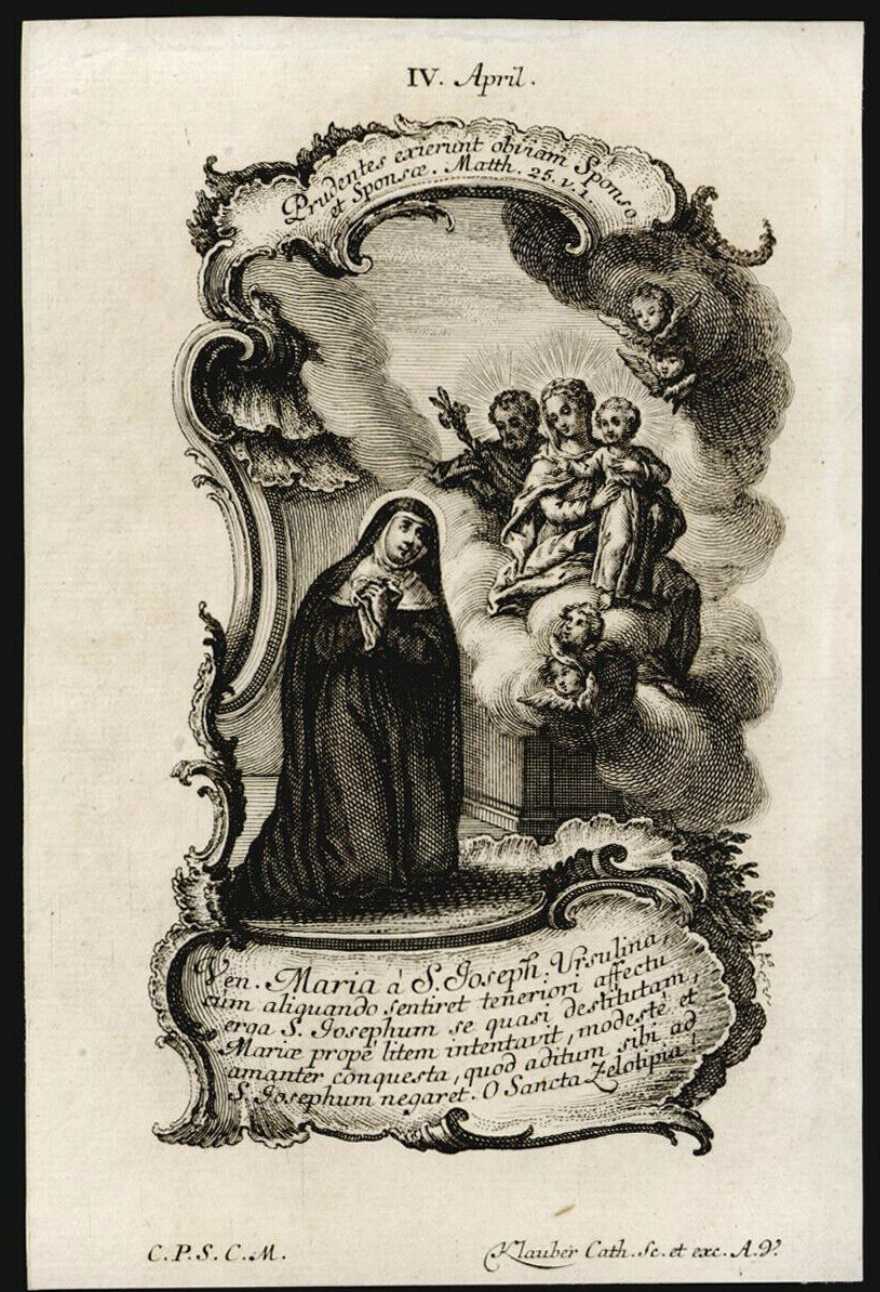 IV. April.
Prudentes exierunt obviam Sponso
et Sponsæ. Matth. 25. v. 1.
Ven. Maria à S. Joseph. Ursulina,
cum aliquando sentiret teneriori affectu
erga S. Josephum se quasi destitutam,
Mariæ propè litem intentavit, modestè et
amanter conquesta, quod aditum sibi ad
S. Josephum negaret. O Sancta Zelotipia!
C. P. S. C. M.
Klauber Cath. Sc. et exc. A. V.